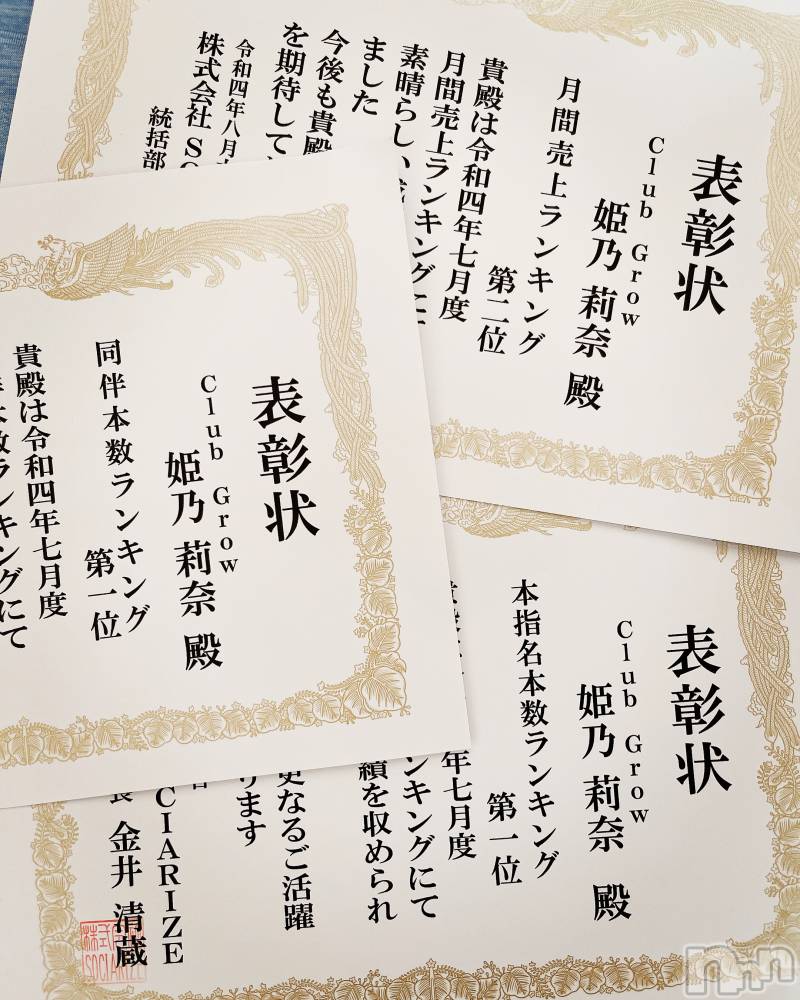 表彰状
Club Grow
姫乃 莉奈 殿
月間売上ランキング
第二位
貴殿は令和四年七月度
月間売上ランキングにて
素晴らしい
ました
今後も貴殿
を期待して
令和四年八月
株式会社 SO
統括部
表彰状
Club Grow
姫乃 莉奈 殿
同伴本数ランキング
第一位
貴殿は令和四年七月度
本数ランキングにて
表彰状
Club Grow
姫乃 莉奈 殿
本指名本数ランキング
第一位
年七月度
ンキングにて
績を収められ
更なるご活躍
ります
CIARIZE
長 金井 清蔵
株式
SOCIARIZE
n+n